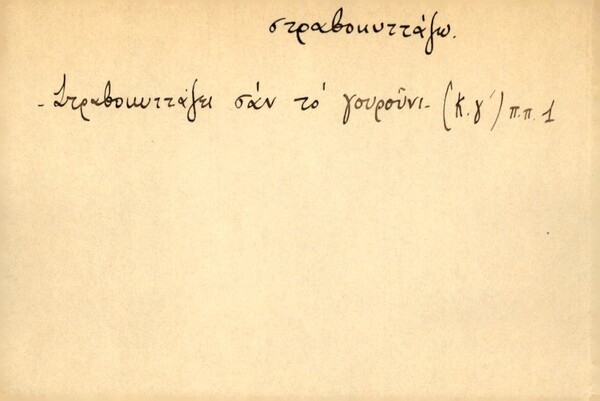 στραβοκυττάζω.
- Στραβοκυττάζει σάν τό γουροῦνι - (Κ.γ΄) π.π. 1